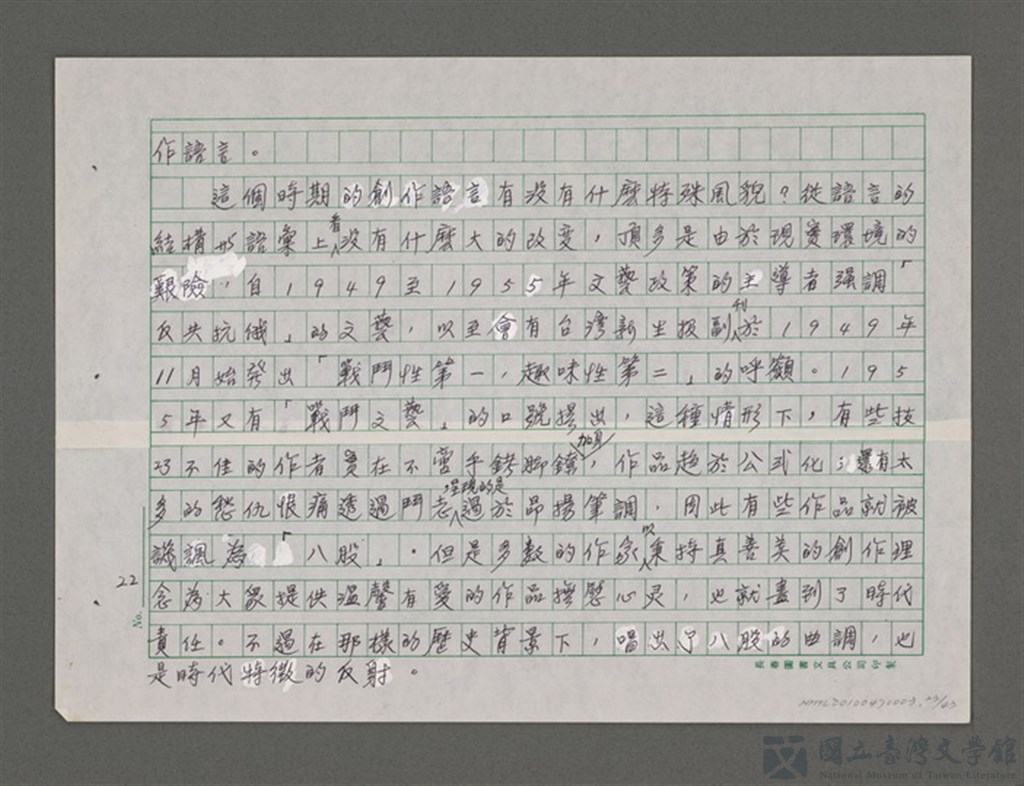 作語言。
這個時期的創作語言有沒有什麼特殊風貌？從語言的
結構形語彙上看沒有什麼大的改变，頂多是由於現實環境的
艱險，自1949至1955年文藝政策的主導者强調「
反共抗俄」的文藝，以至會有台湾新生报副刊於1949年
11月始發出「戰鬥性第一，趣味性第二」的呼籲。195
5年又有「戰鬥文藝」的口號提出，這種情形下，有些技
巧不佳的作者實在不啻手銬脚鐐加身，作品趋於公式化；還有太
多的愁仇恨痛透過鬥志呈現的是過於昂揚筆調，因此有些作品就被
譏諷為「八股」。但是多數的作家以秉持真善美的創作理
念為大眾提供溫馨有愛的作品撫慰心灵，也就盡到了時代
責任。不過在那樣的歷史背景下，唱出了八股的曲調，也
是時代特徵的反射。
No. 22
長春圖書文具公司印製
NMTL20100470003, 23/43
國立臺灣文學館
National Museum of Taiwan Literature